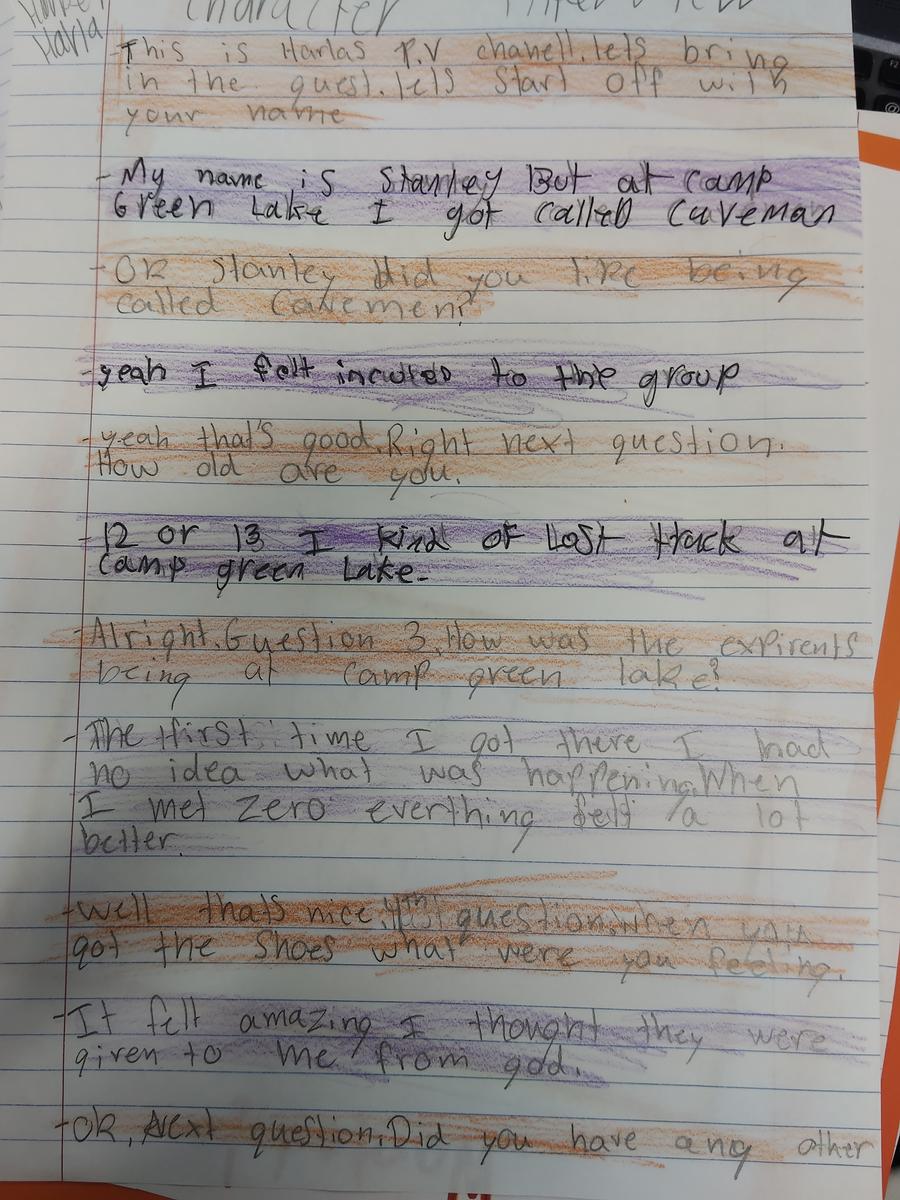 Character Interview
Harla
-This is Harlas T.V chanell.lets bring
in the guest.lets start off with
your name
-My name is Stanley But at camp
Green Lake I got called Caveman
-OK Stanley did you like being
called Cavemen?
-yeah I felt incuded to the group
-yeah that's good.Right next question.
How old are you.
-12 or 13 I kind of Lost track at
camp green Lake.
-Alright.Question 3.How was the expirents
being at camp green lake?
-The first time I got there I had
no idea what was happening.When
I met Zero everthing felt a lot
better.
-Well thats nice. question.when you
got the shoes what were you feeling.
-It felt amazing I thought they were
given to me from god.
-OK, Next question.Did you have any other